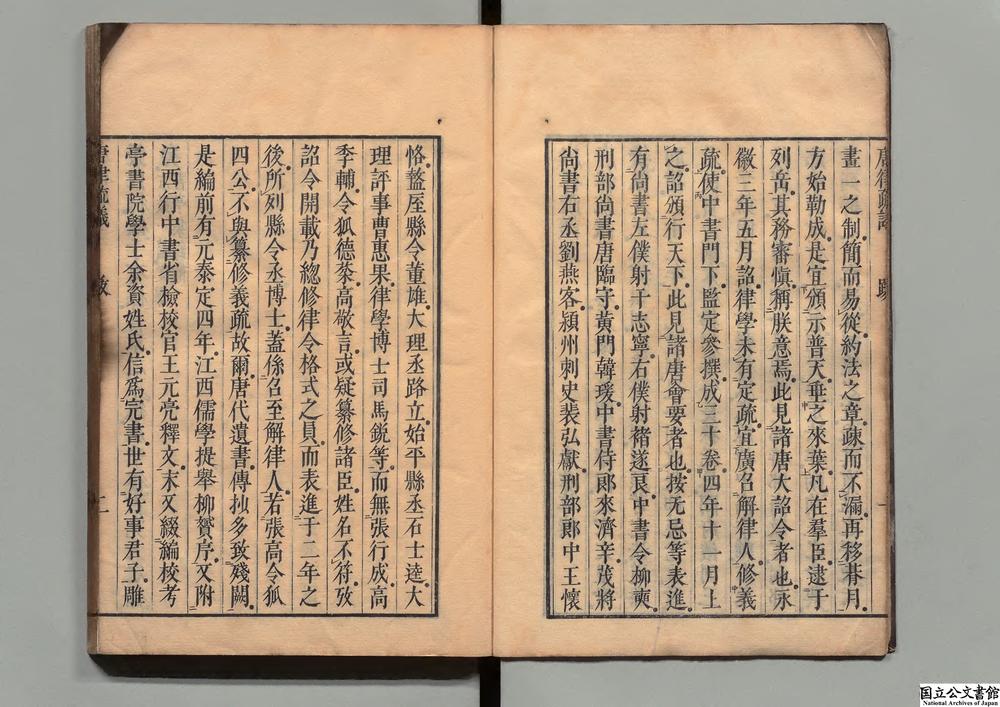 畫一之制簡而易從約法之章疎而不漏再移朞月
方始勒成是宜頒示普天垂之來葉凡在羣臣逮于
列岳其務審愼稱朕意焉此見諸唐大詔令者也永
徽三年五月詔律學未有定疏宜廣召解律人修義
疏使中書門下監定參撰成三十卷四年十一月上
之詔頒行天下此見諸唐會要者也按无忌等表進
有尙書左僕射于志寧右僕射褚遂良中書令柳奭
刑部尙書唐臨守黃門韓瑗中書侍郎來濟辛茂將
尙書右丞劉燕客潁州刺史裴弘獻刑部郎中王懷
恪盩厔縣令董雄大理丞路立始平縣丞石士逵大
理評事曹惠果律學博士司馬銳等而無張行成高
季輔令狐德棻高敬言或疑纂修諸臣姓名不符攷
詔令開載乃總修律令格式之員而表進于二年之
後所列縣令丞博士蓋係召至解律人若張高令狐
四公不與纂修義疏故爾唐代遺書傳抄多致殘闕
是編前有元泰定四年江西儒學提舉柳贇序又附
江西行中書省檢校官王元亮釋文末又綴編校考
亭書院學士余資姓氏信爲完書世有好事君子雕
唐律疏議 跋 二
国立公文書館
National Archives of Japan